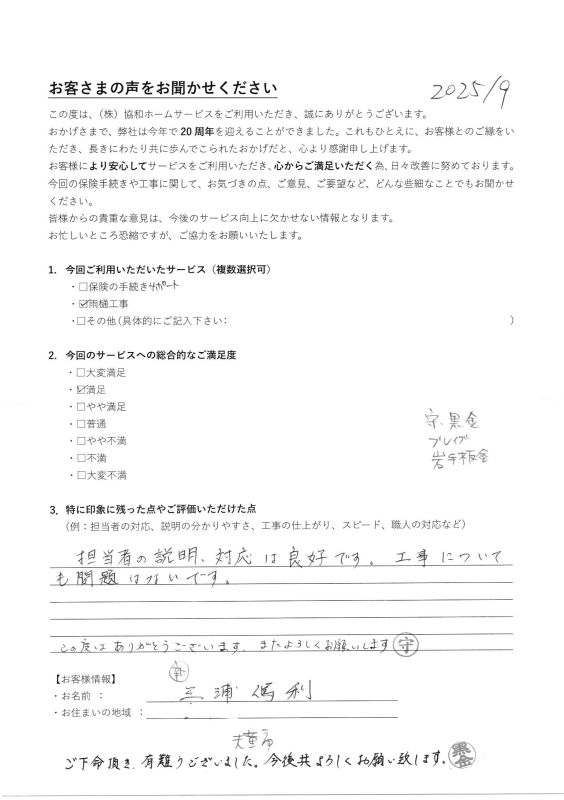 お客さまの声をお聞かせください
2025/9
この度は、（株）協和ホームサービスをご利用いただき、誠にありがとうございます。
おかげさまで、弊社は今年で 20 周年を迎えることができました。これもひとえに、お客様とのご縁をい
ただき、長きにわたり共に歩んでこられたおかげだと、心より感謝申し上げます。
お客様により安心してサービスをご利用いただき、心からご満足いただく為、日々改善に努めております。
今回の保険手続きや工事に関して、お気づきの点、ご意見、ご要望など、どんな些細なことでもお聞かせ
ください。
皆様からの貴重な意見は、今後のサービス向上に欠かせない情報となります。
お忙しいところ恐縮ですが、ご協力をお願いいたします。
1. 今回ご利用いただいたサービス（複数選択可）
・□保険の手続きサポート
・☑雨樋工事
・□その他 (具体的にご記入下さい： ）
2. 今回のサービスへの総合的なご満足度
・□大変満足
・☑満足
・□やや満足
・□普通
・□やや不満
・□不満
・□大変不満
守、黒金
ブレイブ
岩手板金
3. 特に印象に残った点やご評価いただけた点
（例：担当者の対応、説明の分かりやすさ、工事の仕上がり、スピード、職人の対応など）
担当者の説明、対応は良好です。工事について
も問題はないです。
この度はありがとうございます。またよろしくお願いします 守
【お客様情報】
・お名前 ：
三浦 利
・お住まいの地域 ：
天童市
ご下命頂き、有難うございました。今後共よろしくお願い致します。 黒金